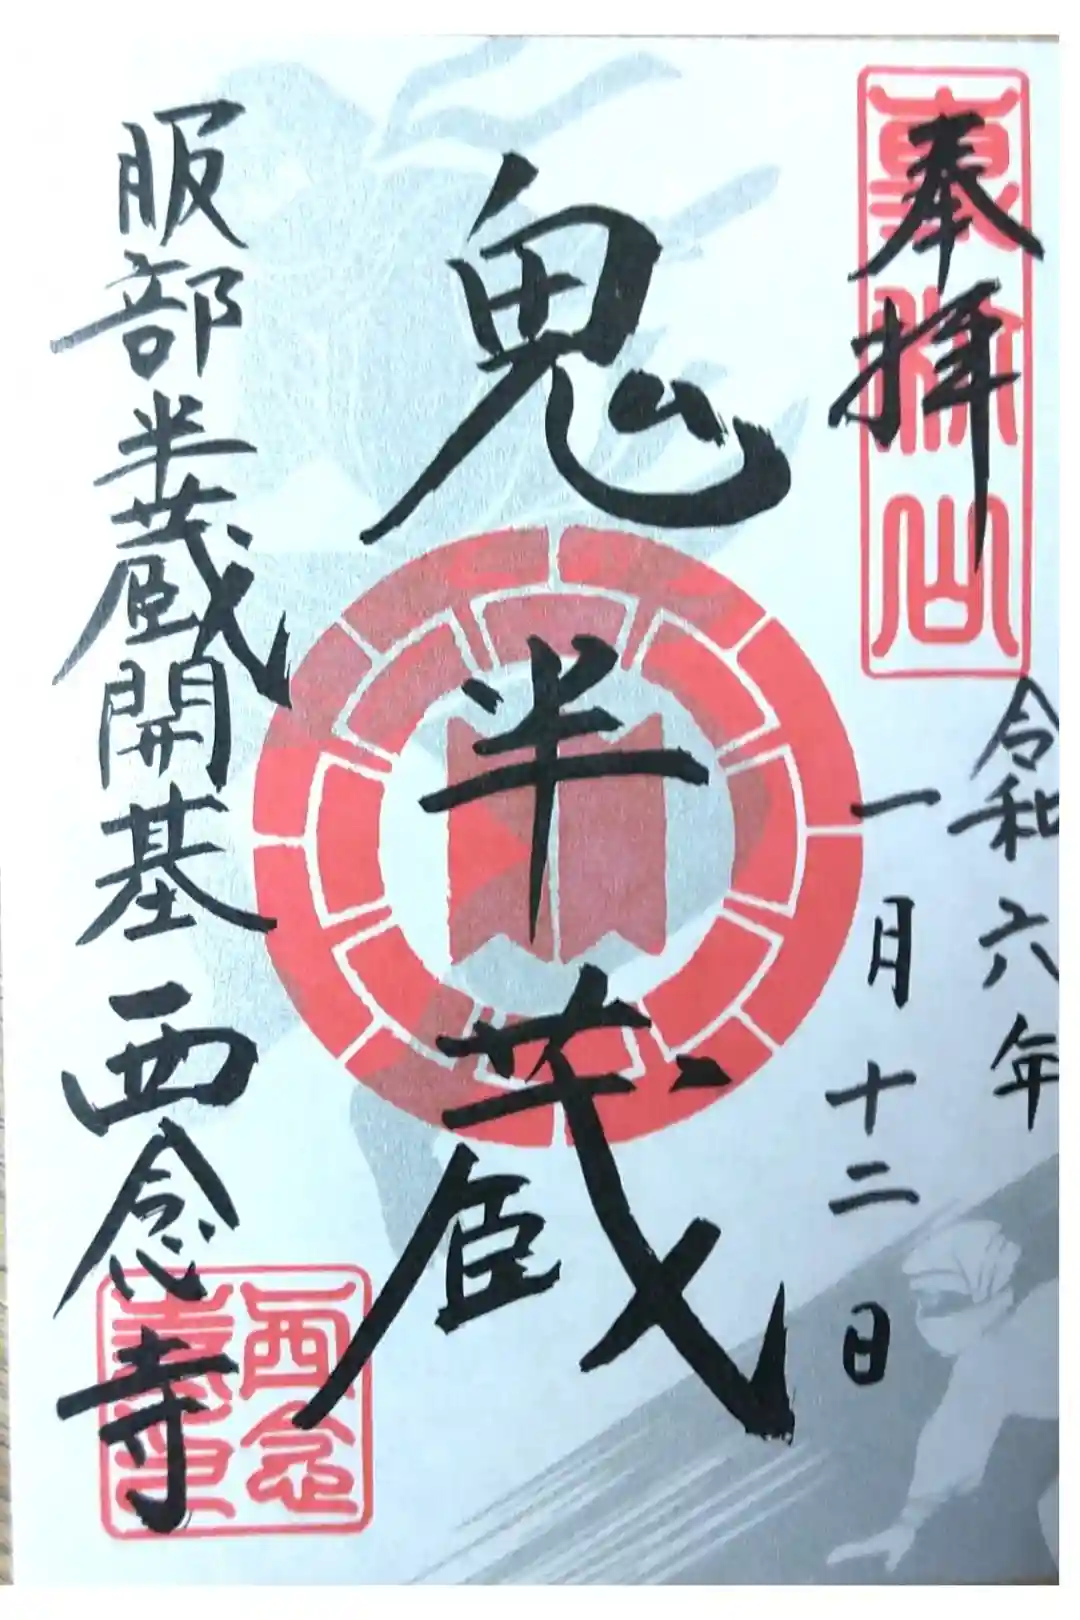 奉拝
令和六年
一月十二日
鬼半蔵
服部半蔵開基西念寺
西念